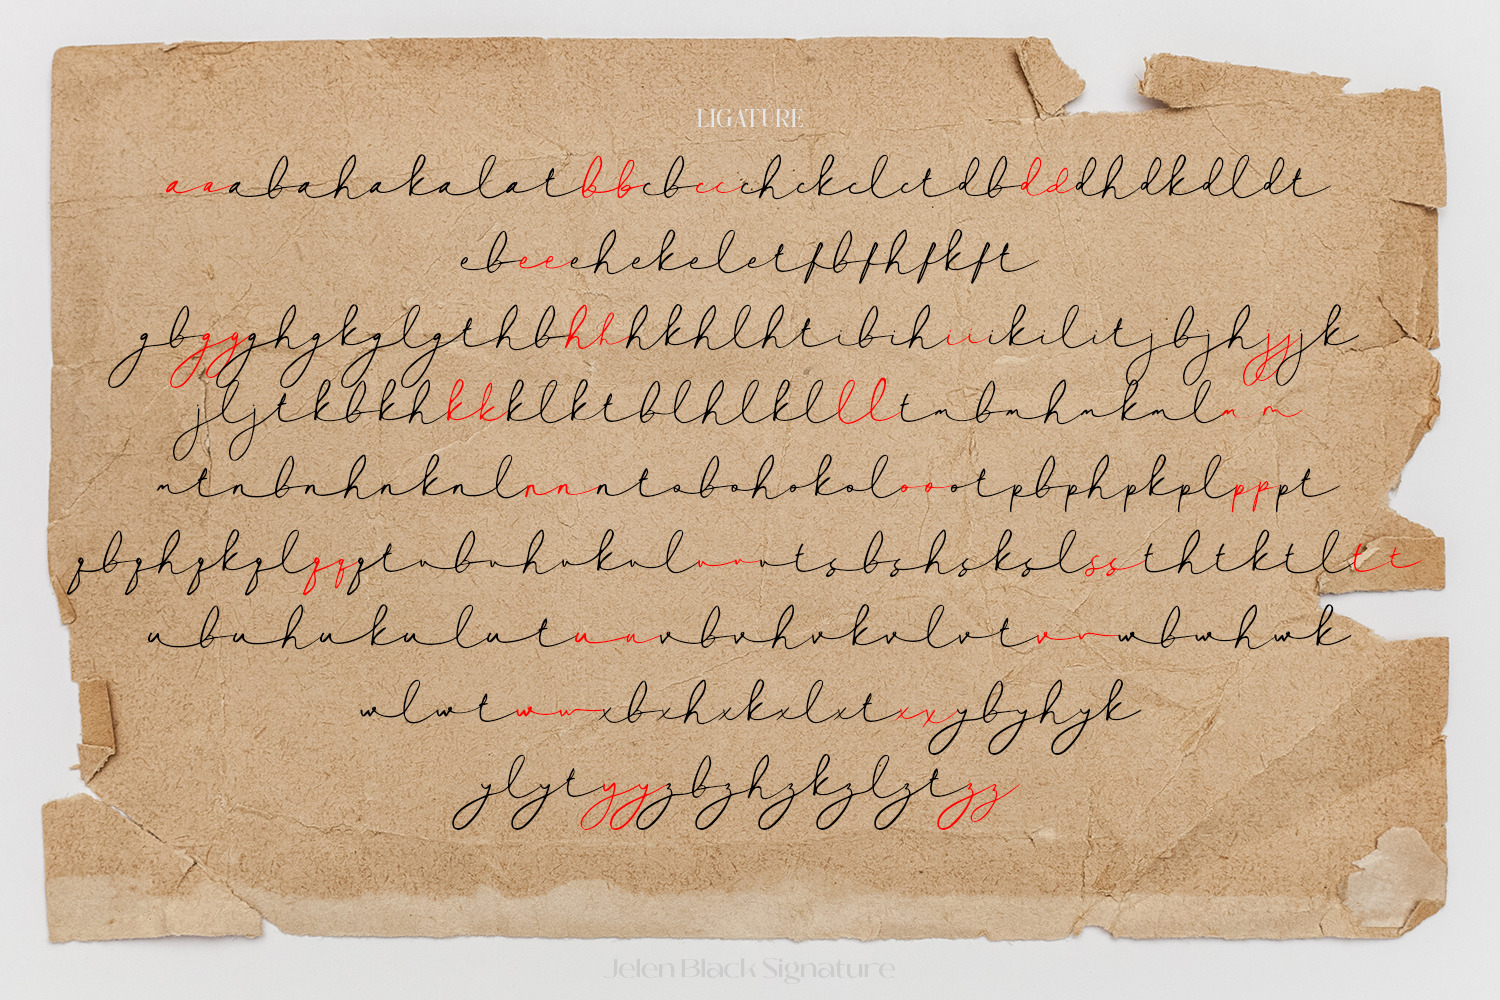 LIGATURE
aaabahakalatbbcbccchckclctdbdddhdkdldt
ebeeehekeletfbfhfkft
gbggghgkglgthbhhhkhlhtibihiiikilitjbjhjjjk
jljtkbkhkkklktblhlkllltmbmhmkmlmm
mtnbnhnknlnnntobohokoloootpbphpkplpppt
qbqhqkqlqqqtrbrhrkrlrrrtsbshskslssthtktltt
ubuhukulutuuvbvhvkvlvtvvwbwhwk
wlwtwwxbxhxkxlxtxxybyhyk
ylytyyzbzhzkzlztzz
Jelen Black Signature